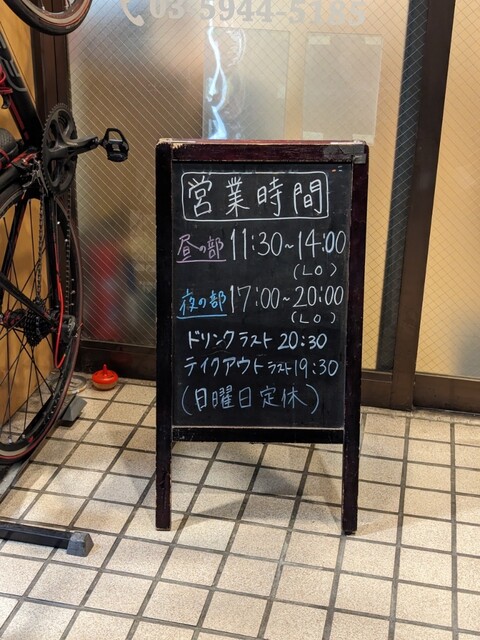 03-5944-5185
営業時間
昼の部 11:30~14:00
(LO)
夜の部 17:00~20:00
(LO)
ドリンクラスト 20:30
テイクアウトラスト19:30
(日曜日定休)